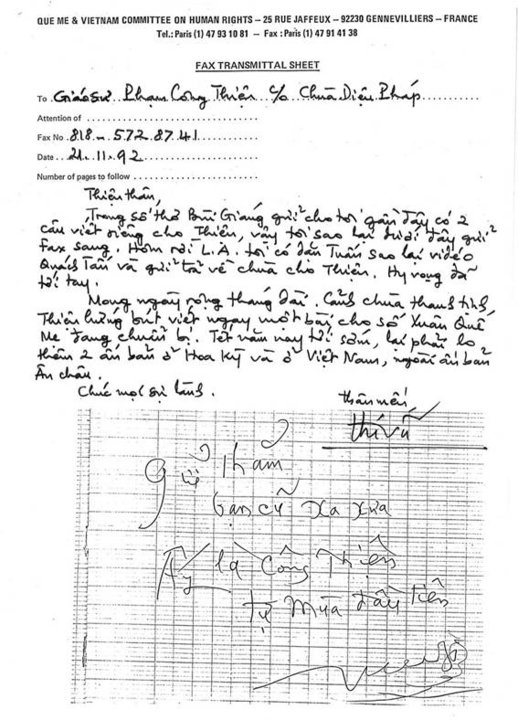 QUE ME & VIETNAM COMMITTEE ON HUMAN RIGHTS – 25 RUE JAFFEUX – 92230 GENNEVILLIERS – FRANCE
Tel.: Paris (1) 47 93 10 81 – Fax : Paris (1) 47 91 41 38
FAX TRANSMITTAL SHEET
To Giáo sư Phạm Công Thiện c/o Chùa Diệu Pháp
Attention of
Fax No 818 - 572 - 87.41
Date 21.11.92
Number of pages to follow
Thiện thân,
Trong số thơ Bùi Giáng gửi cho tôi gần đây có 2
câu viết riêng cho Thiện, vậy tôi sao lại dưới đây gửi
Fax sang. Hôm rời L.A. tôi có dặn Tuấn sao lại vidéo
Quách Tấn và gửi trả về chùa cho Thiện. Hy vọng đã
tới tay.
Mong ngày rộng tháng dài. Cảnh chùa thanh tịnh
Thiện hứng bút viết ngay một bài cho số Xuân Quê
Mẹ đang chuẩn bị. Tết năm nay tới sớm, lại phải lo
thêm 2 ấn bản ở Hoa Kỳ và ở Việt Nam, ngoài ấn bản
Âu châu.
Chúc mọi sự lành.
thân mến,
thi vũ
gửi thăm
bạn cũ xa xưa
Ấy là Công Thiện
tự mùa đầu tiên